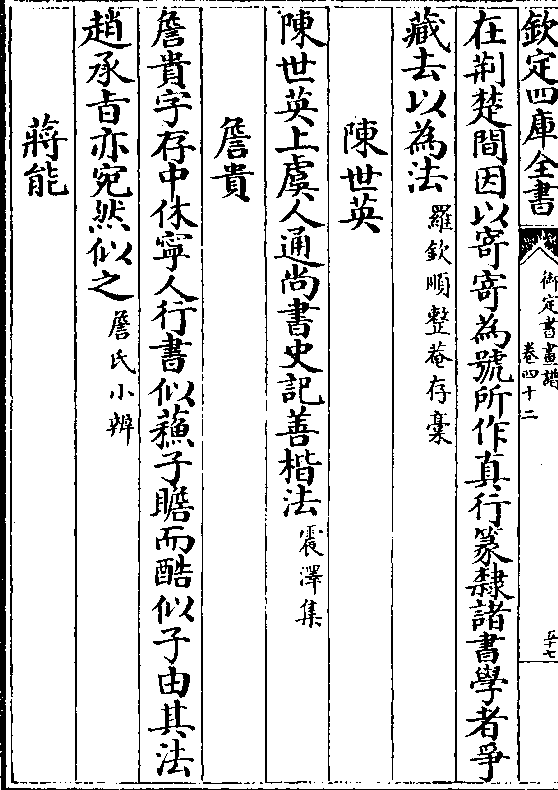 欽定四庫全書
御定書畫譜
卷四十二
五十七
在荆楚間因以寄寄為號所作真行篆隸諸書學者爭
藏去以為法羅欽順整菴存稾
陳世英
陳世英上虞人通尚書史記善楷法震澤集
詹貴
詹貴字存中休寧人行書似蘓子瞻而酷似子由其法
趙承旨亦宛然似之詹氏小辨
蔣能